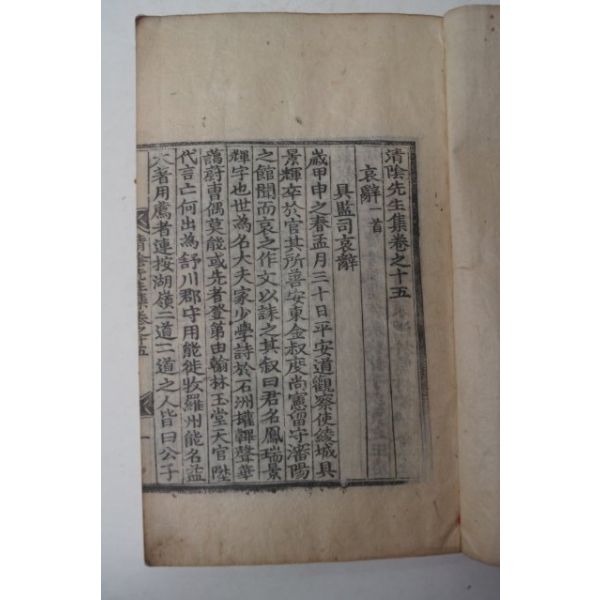 清陰先生集卷之十五
哀辭 首
具監司哀辭
歲甲申之春孟月三十日平安道觀察使綾城具
景輝卒於官其所善安東金叔度尚憲留守瀋陽
之館聞而哀之作文以誄之其叙曰君名鳳瑞景
輝字也世為名大夫家少學詩於石洲權韠聲華
藹蔚曹偶莫能或先者登第由翰林玉堂天官陞
代言亡何出為舒川郡守用能徙牧羅州能名益
大著用薦者連按湖嶺二道二道之人皆曰公子
清陰先生集卷之十五 一